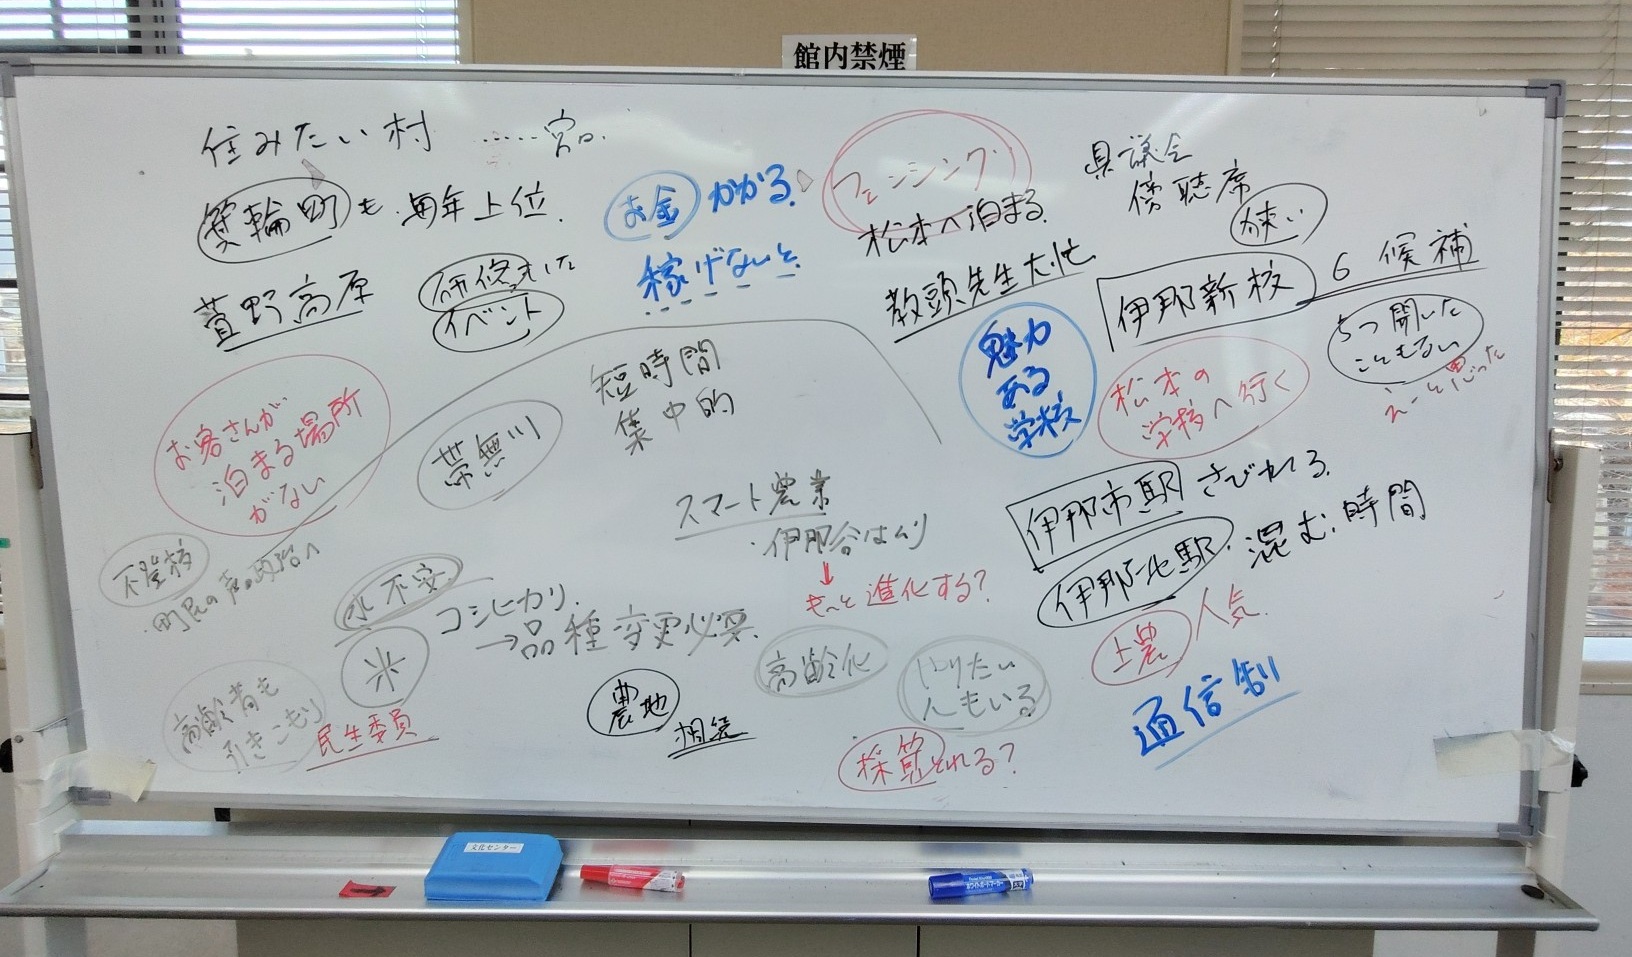 館内禁煙
住みたい村 ……宮田.
箕輪町も毎年上位.
萱野高原
研修または
イベント
お金かかる.
稼げないと
フェンシング
松本へ泊まる.
教頭先生大忙
県議会
傍聴席
狭い
伊那新校 6候補
5つ聞いた
こともない
えーと思った
魅力
ある
学校
松本の
学校へ行く
お客さんが
泊まる場所
がない
帯無川
短時間
集中的
スマート農業
・伊那谷はムリ
↓
もっと進化する?
伊那市駅 さびれる.
伊那北駅. 混む.時間
上農 人気.
通信制
不登校
・町民の声を政治へ
水不安
コシヒカリ.
→品種変更必要.
米
高齢者も
引きこもり
民生委員
農地
相続
高齢化
やりたい
人もいる
採算とれる?
文化センター
ホワイトボードマーカー